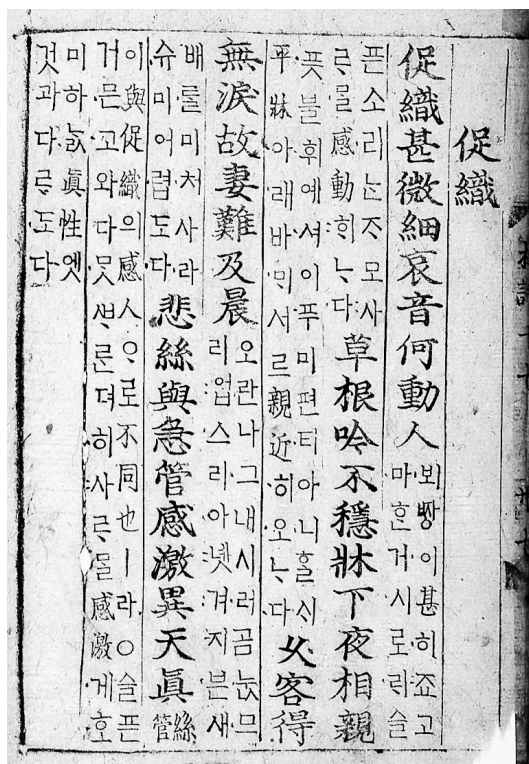 促織
促織甚微細哀音何動人
뵈ᄧᅡᆼ이甚히죠고
마ᄒᆞᆫ거시로ᄃᆡ슬
픈소리ᄂᆞᆫᄌᆞ모사
ᄅᆞᄆᆞᆯ感動ᄒᆡᄂᆞ다
草根吟不穩牀下夜相親
픗불휘예셔이푸미편티아니ᄒᆞᆯᄉᆡ
平牀아래바ᄆᆡ서르親近히오ᄂᆞ다
久客得
無淚故妻難及晨
오란나그내시러곰눉므
리업스리아녯겨지븐새
배ᄅᆞᆯ미처사라
슈미어렵도다
悲絲與急管感激異天眞
絲
管
이與促織의感人ᄋᆞ로不同也ㅣ라○슬픈
거믄고와다ᄆᆞᆺᄲᆞᄅᆞᆫ뎌히사ᄅᆞᄆᆞᆯ感激게호
미하ᄂᆞᇗ眞性엣
것과다ᄅᆞ도다